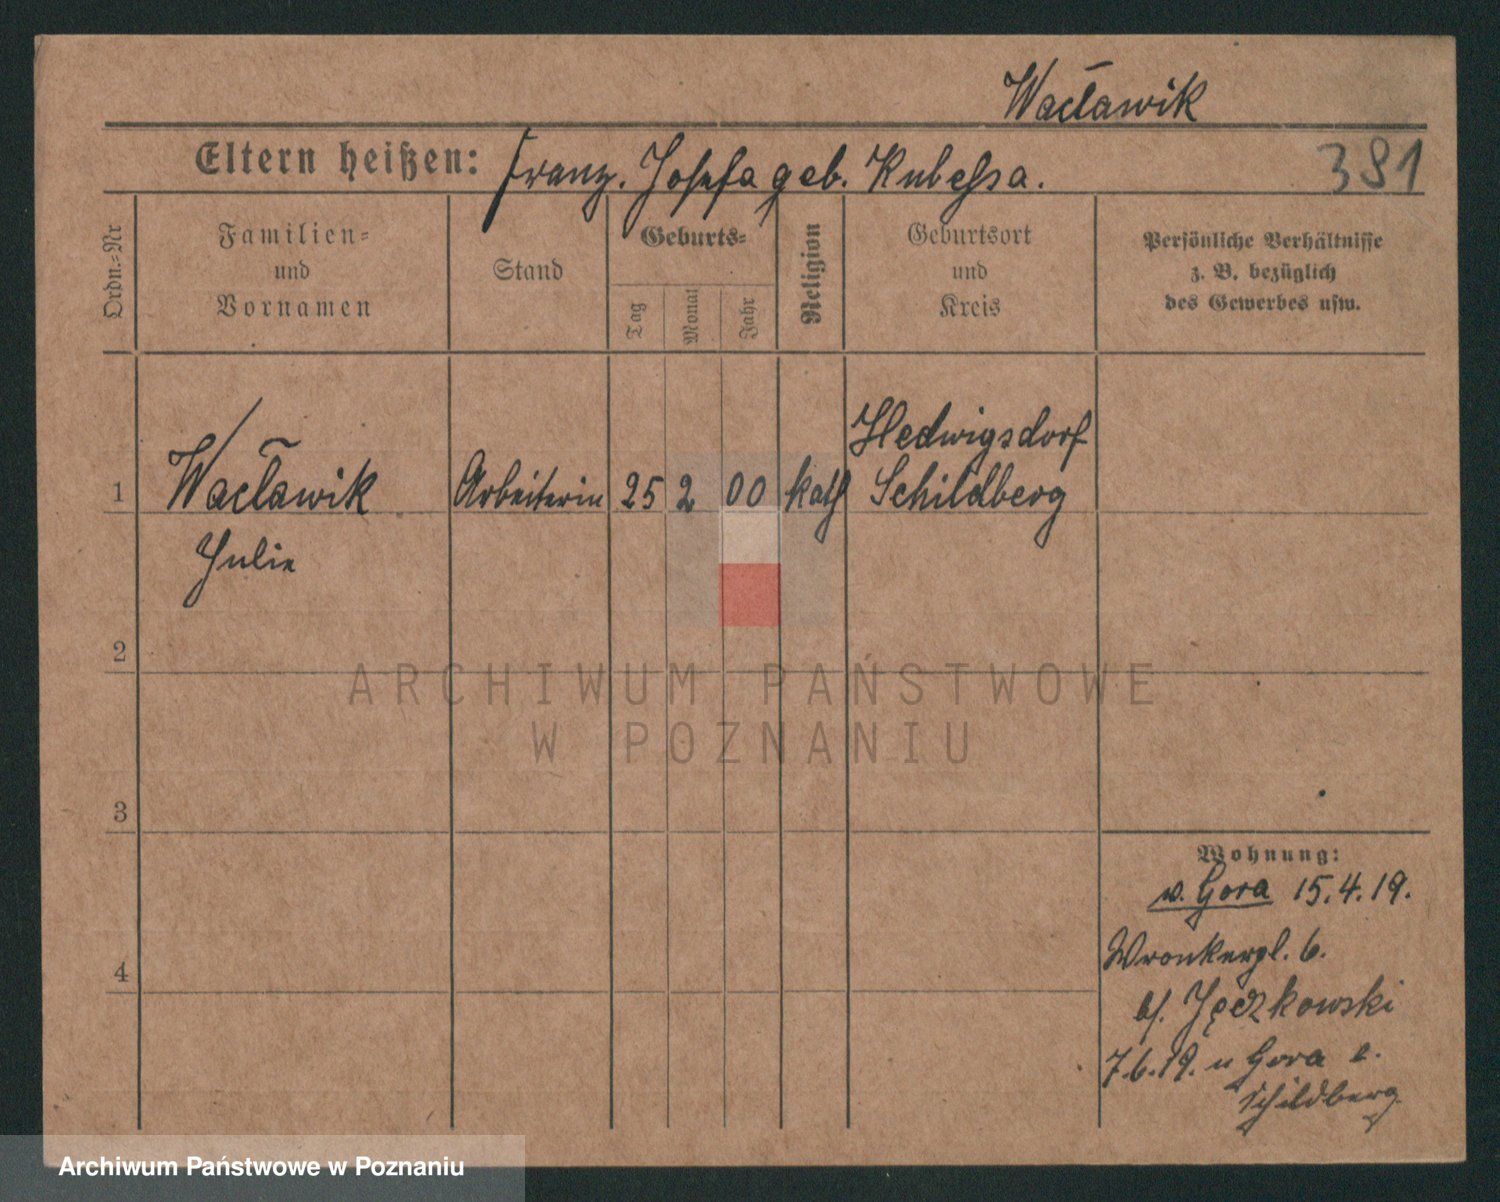 Wacławik
Eltern heißen: Franz. Josefa geb. Kubessa.
381
Ordn.=Nr
Familien=
und
Vornamen
Stand
Geburts=
Tag
Monat
Jahr
Religion
Geburtsort
und
Kreis
Persönliche Verhältnisse
z. B. bezüglich
des Gewerbes usw.
1 Wacławik Arbeiterin 25 2 00 kath Hedwigsdorf
Schildberg
Julie
2
3
4
Wohnung:
v. Gora 15.4.19.
Wronkerpl. 6.
b/. Jęczkowski
7.6.19. n Gora
Schildberg
ARCHIWUM PAŃSTWOWE
W POZNANIU
Archiwum Państwowe w Poznaniu